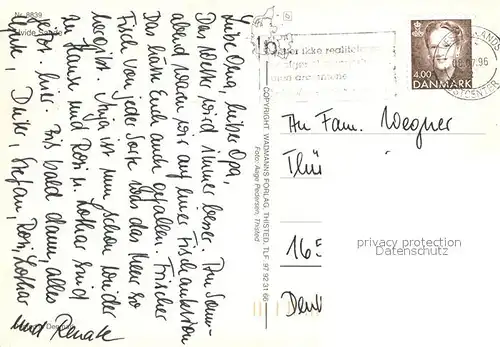 Nr. 8839
Hvide Sande
Liebe Oma, lieber Opa,
Das Wetter wird immer besser. Am Sonn-
abend waren wir auf einer Fischauktion
Das hätte Euch auch gefallen. Frischer
Fisch von jeder Sorte was das Meer so
hergibt. Anja ist nun schon wieder
zu Hause und Rosi u. Lothar sind
jetzt hier. Bis bald dann, alles
Gute, Stefan, Rosi, Lothar
und Renate
COPYRIGHT: WADMANNS FORLAG, THISTED. TLF. 97 92 31 68
Foto: Aage Pedersen, Thisted
ikke
4.00
DANMARK
96
An Fam. Wegner
Thü
165
privacy protection
© ansichtskarten-center.de